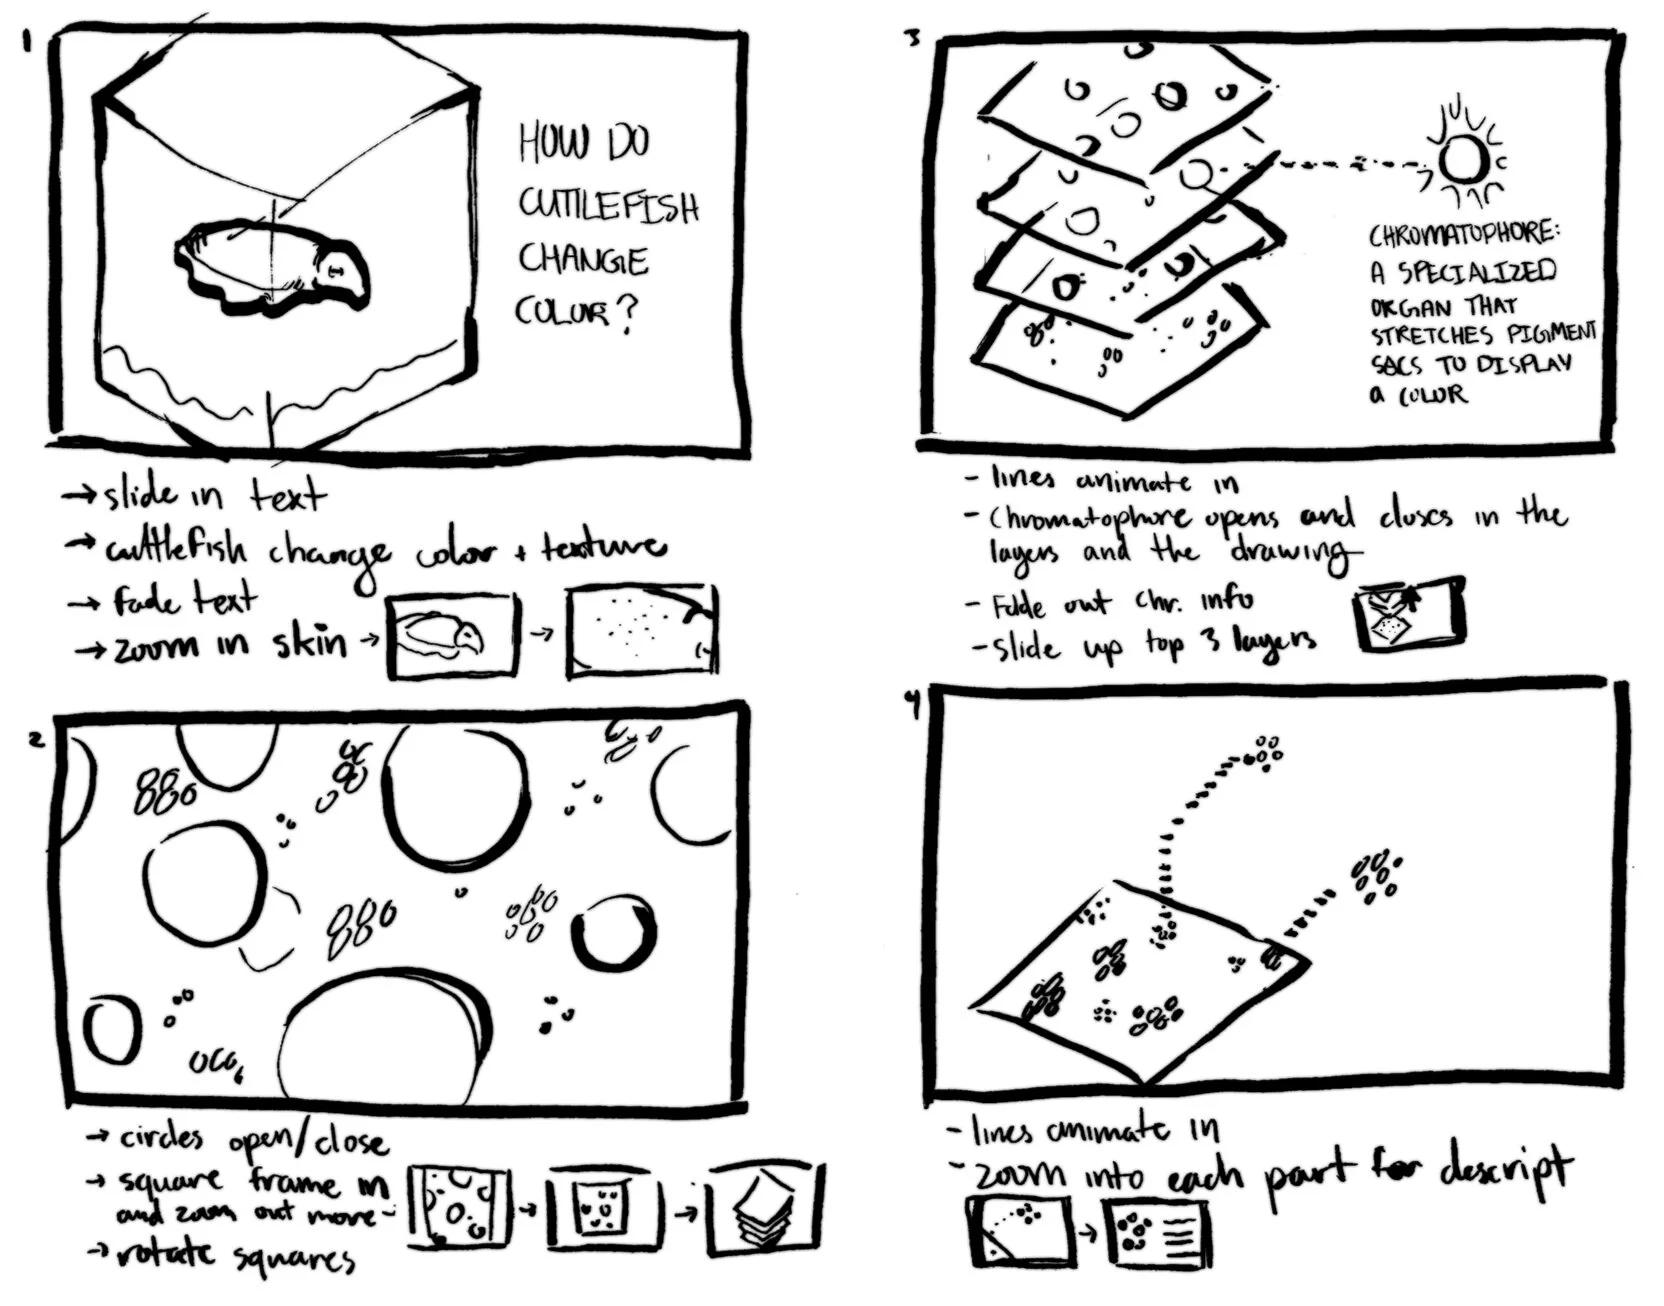 1
HOW DO
CUTTLEFISH
CHANGE
COLOR?
→ slide in text
→ cuttlefish change color + texture
→ fade text
→ zoom in skin →
2
→ circles open/close
→ square frame in
and zoom out more -
→ rotate squares
3
CHROMATOPHORE:
A SPECIALIZED
ORGAN THAT
STRETCHES PIGMENT
SACS TO DISPLAY
a COLOR
- lines animate in
- Chromatophore opens and closes in the
layers and the drawing
- Fade out chr. info
- slide up top 3 layers
4
- lines animate in
- zoom into each part for descript